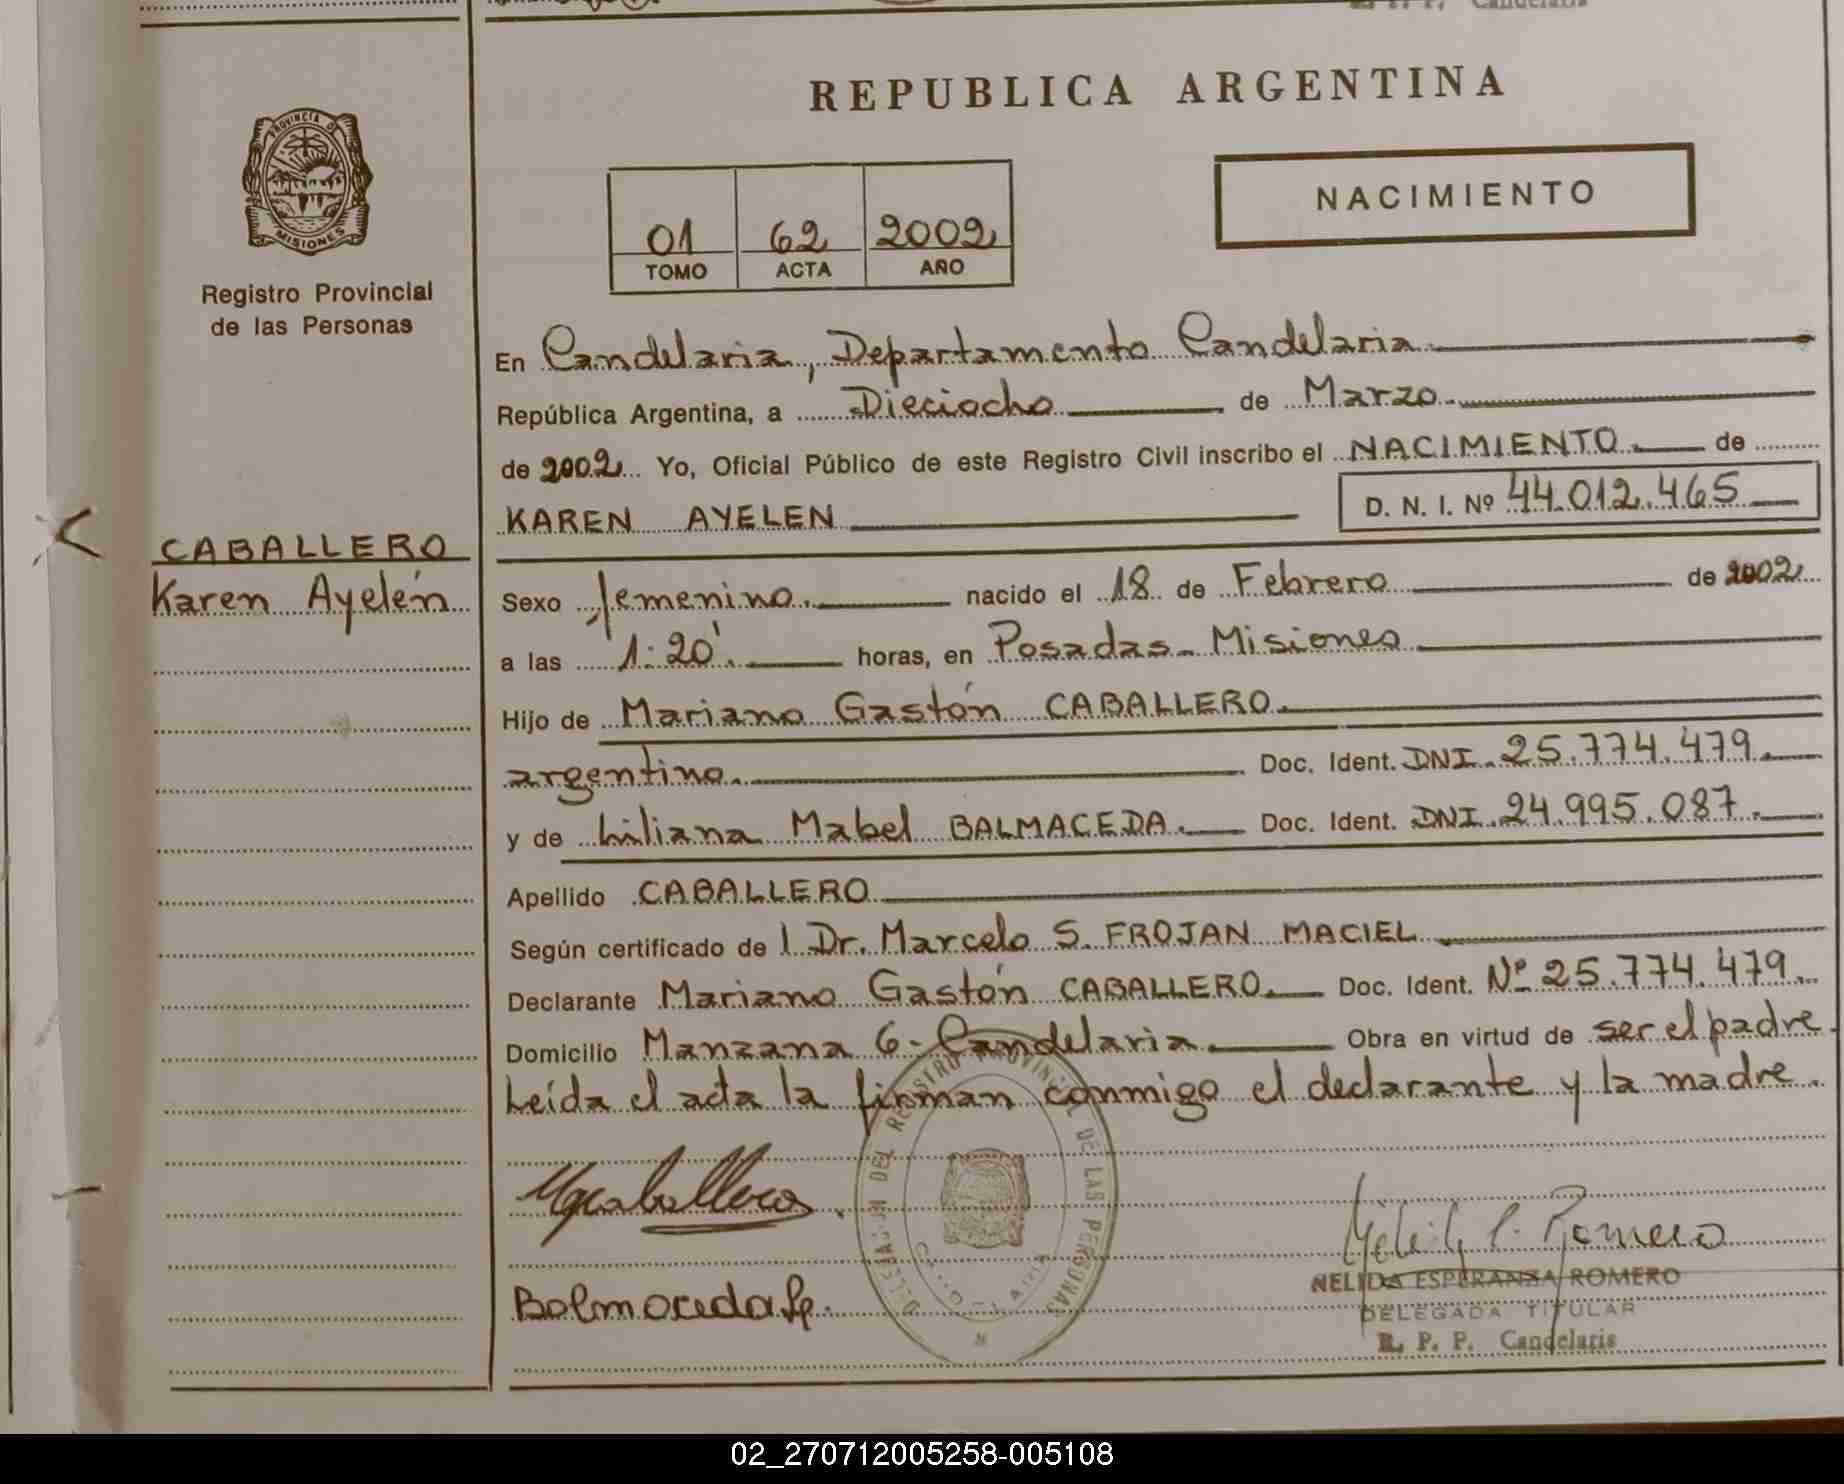 REPUBLICA ARGENTINA
PROVINCIA DE
MISIONES
Registro Provincial
de las Personas
NACIMIENTO
01 62 2002
TOMO ACTA AÑO
En Candelaria, Departamento Candelaria
República Argentina, a Dieciocho de Marzo
de 2002 Yo, Oficial Público de este Registro Civil inscribo el NACIMIENTO. de
KAREN AYELEN D. N. I. Nº 44.012.465
CABALLERO
Karen Ayelén
Sexo femenino. nacido el 18 de Febrero de 2002
a las 1:20'. horas, en Posadas - Misiones
Hijo de Mariano Gastón CABALLERO.
argentino. Doc. Ident. DNI. 25.774.479.
y de Liliana Mabel BALMACEDA. Doc. Ident. DNI. 24.995.087.
Apellido CABALLERO
Según certificado de l Dr. Marcelo S. FROJAN MACIEL
Declarante Mariano Gastón CABALLERO. Doc. Ident. Nº 25.774.479.
Domicilio Manzana 6 - Candelaria. Obra en virtud de ser el padre.
Leída el acta la firman conmigo el declarante y la madre.
DELEGACION DEL REGISTRO PROVINCIAL DE LAS PERSONAS
Balmaceda
Romero
NELIDA ESPERANZA ROMERO
DELEGADA TITULAR
R. P. P. Candelaria
02_270712005258-005108